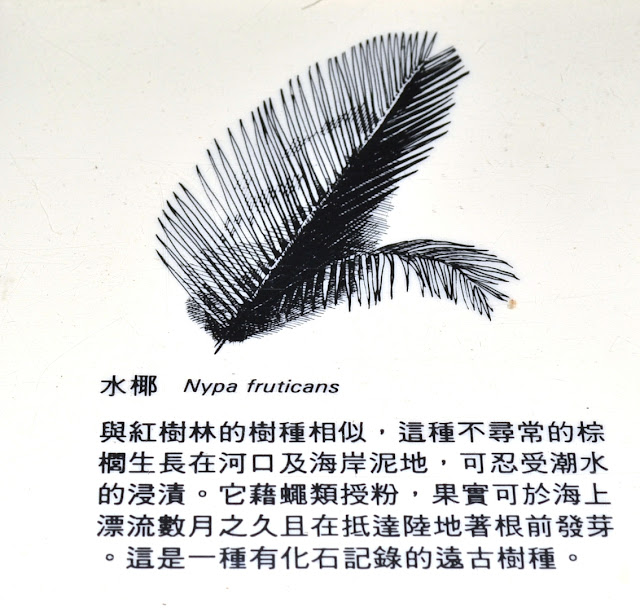 水椰 Nypa fruticans
與紅樹林的樹種相似，這種不尋常的棕
櫚生長在河口及海岸泥地，可忍受潮水
的浸漬。它藉蠅類授粉，果實可於海上
漂流數月之久且在抵達陸地著根前發芽
。這是一種有化石記錄的遠古樹種。